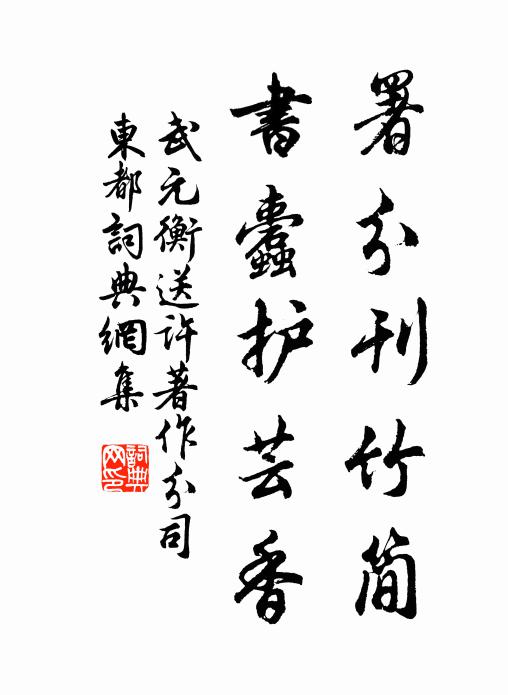 署分刊竹简
書蠹护芸香
武元衡送許著作分司
東都詞典網集
詞典
网印